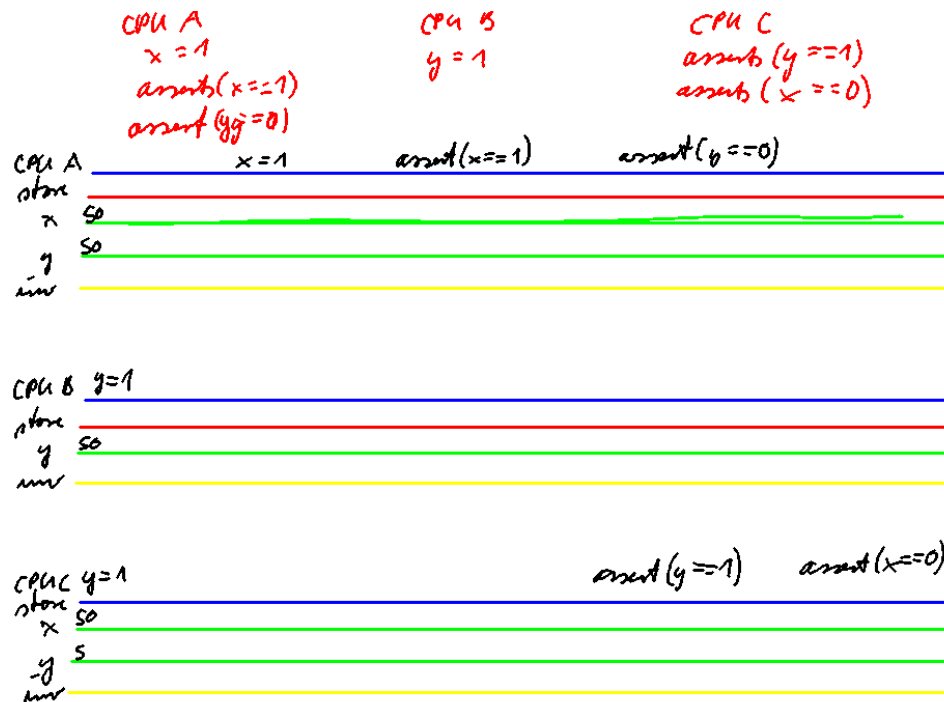 CPU A CPU B CPU C
x = 1 y = 1 asserts (y ==1)
asserts(x==1) asserts (x ==0)
assert (yy=0)
CPU A x=1 assert(x==1) assert(y==0)
store
x S0
y S0
inv
CPU B y=1
store
y S0
inv
CPU C y=1 assert(y==1) assert(x==0)
store
x S0
y S
inv